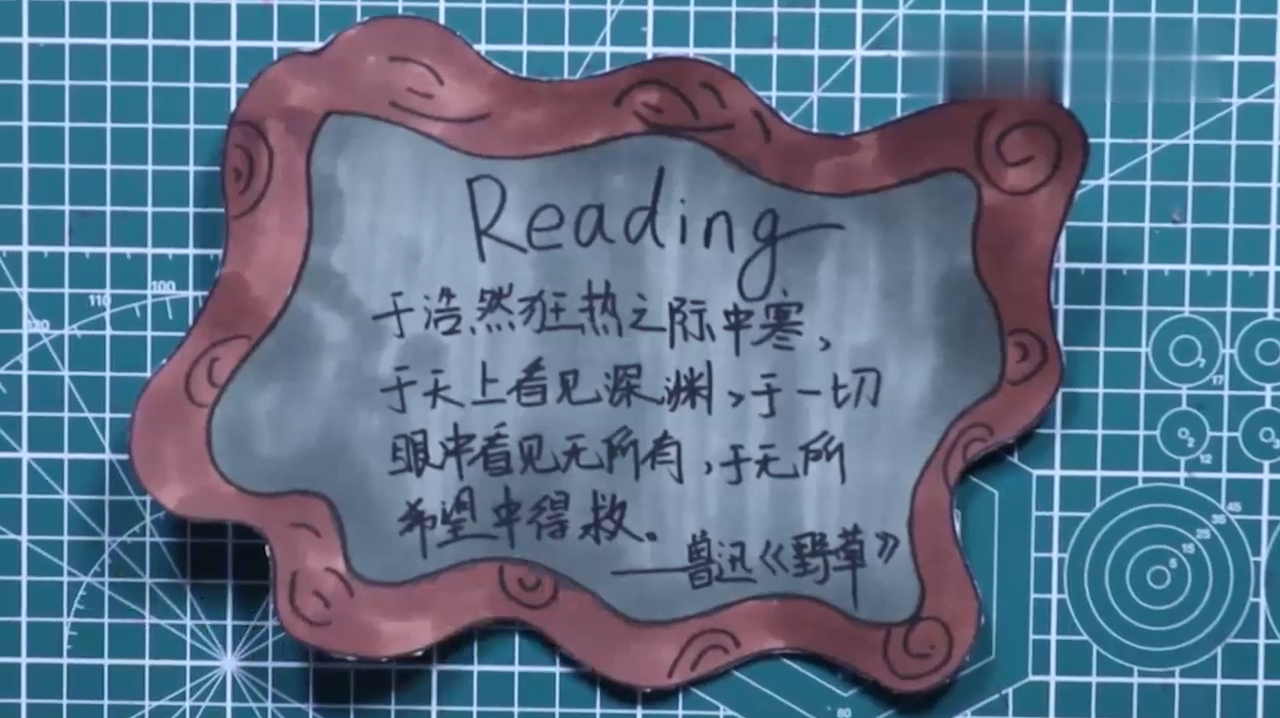 Reading
于浩然狂热之际中寒,
于天上看见深渊,于一切
眼中看见无所有,于无所
希望中得救。
——鲁迅《野草》
110
100
120
7
17
2
12
2
45
35
25
15
5
60